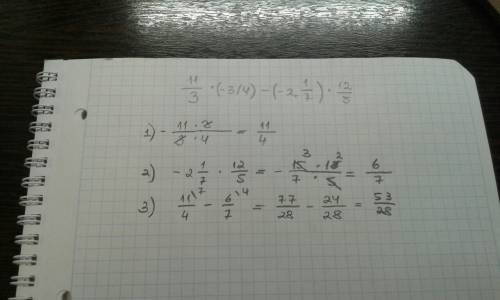 11/3 · (-3/4) - (-2 1/7) · 12/5
1) - 11 · 3 / 3 · 4 = 11/4
2) - 2 1/7 · 12/5 = - 15 3 · 12 / 7 · 5 = 6/7
3) 11/4 \7 - 6/7 \4 = 77/28 - 24/28 = 53/28